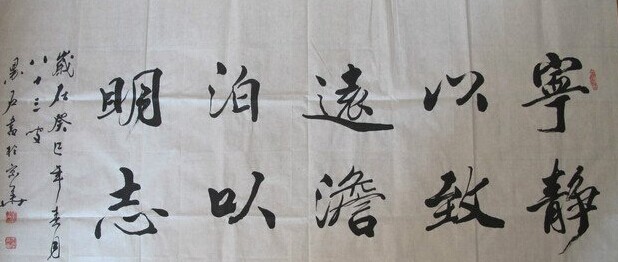 寧靜
以致
遠澹
泊以
明志
歲在癸巳年春月
八十三叟
書於京華